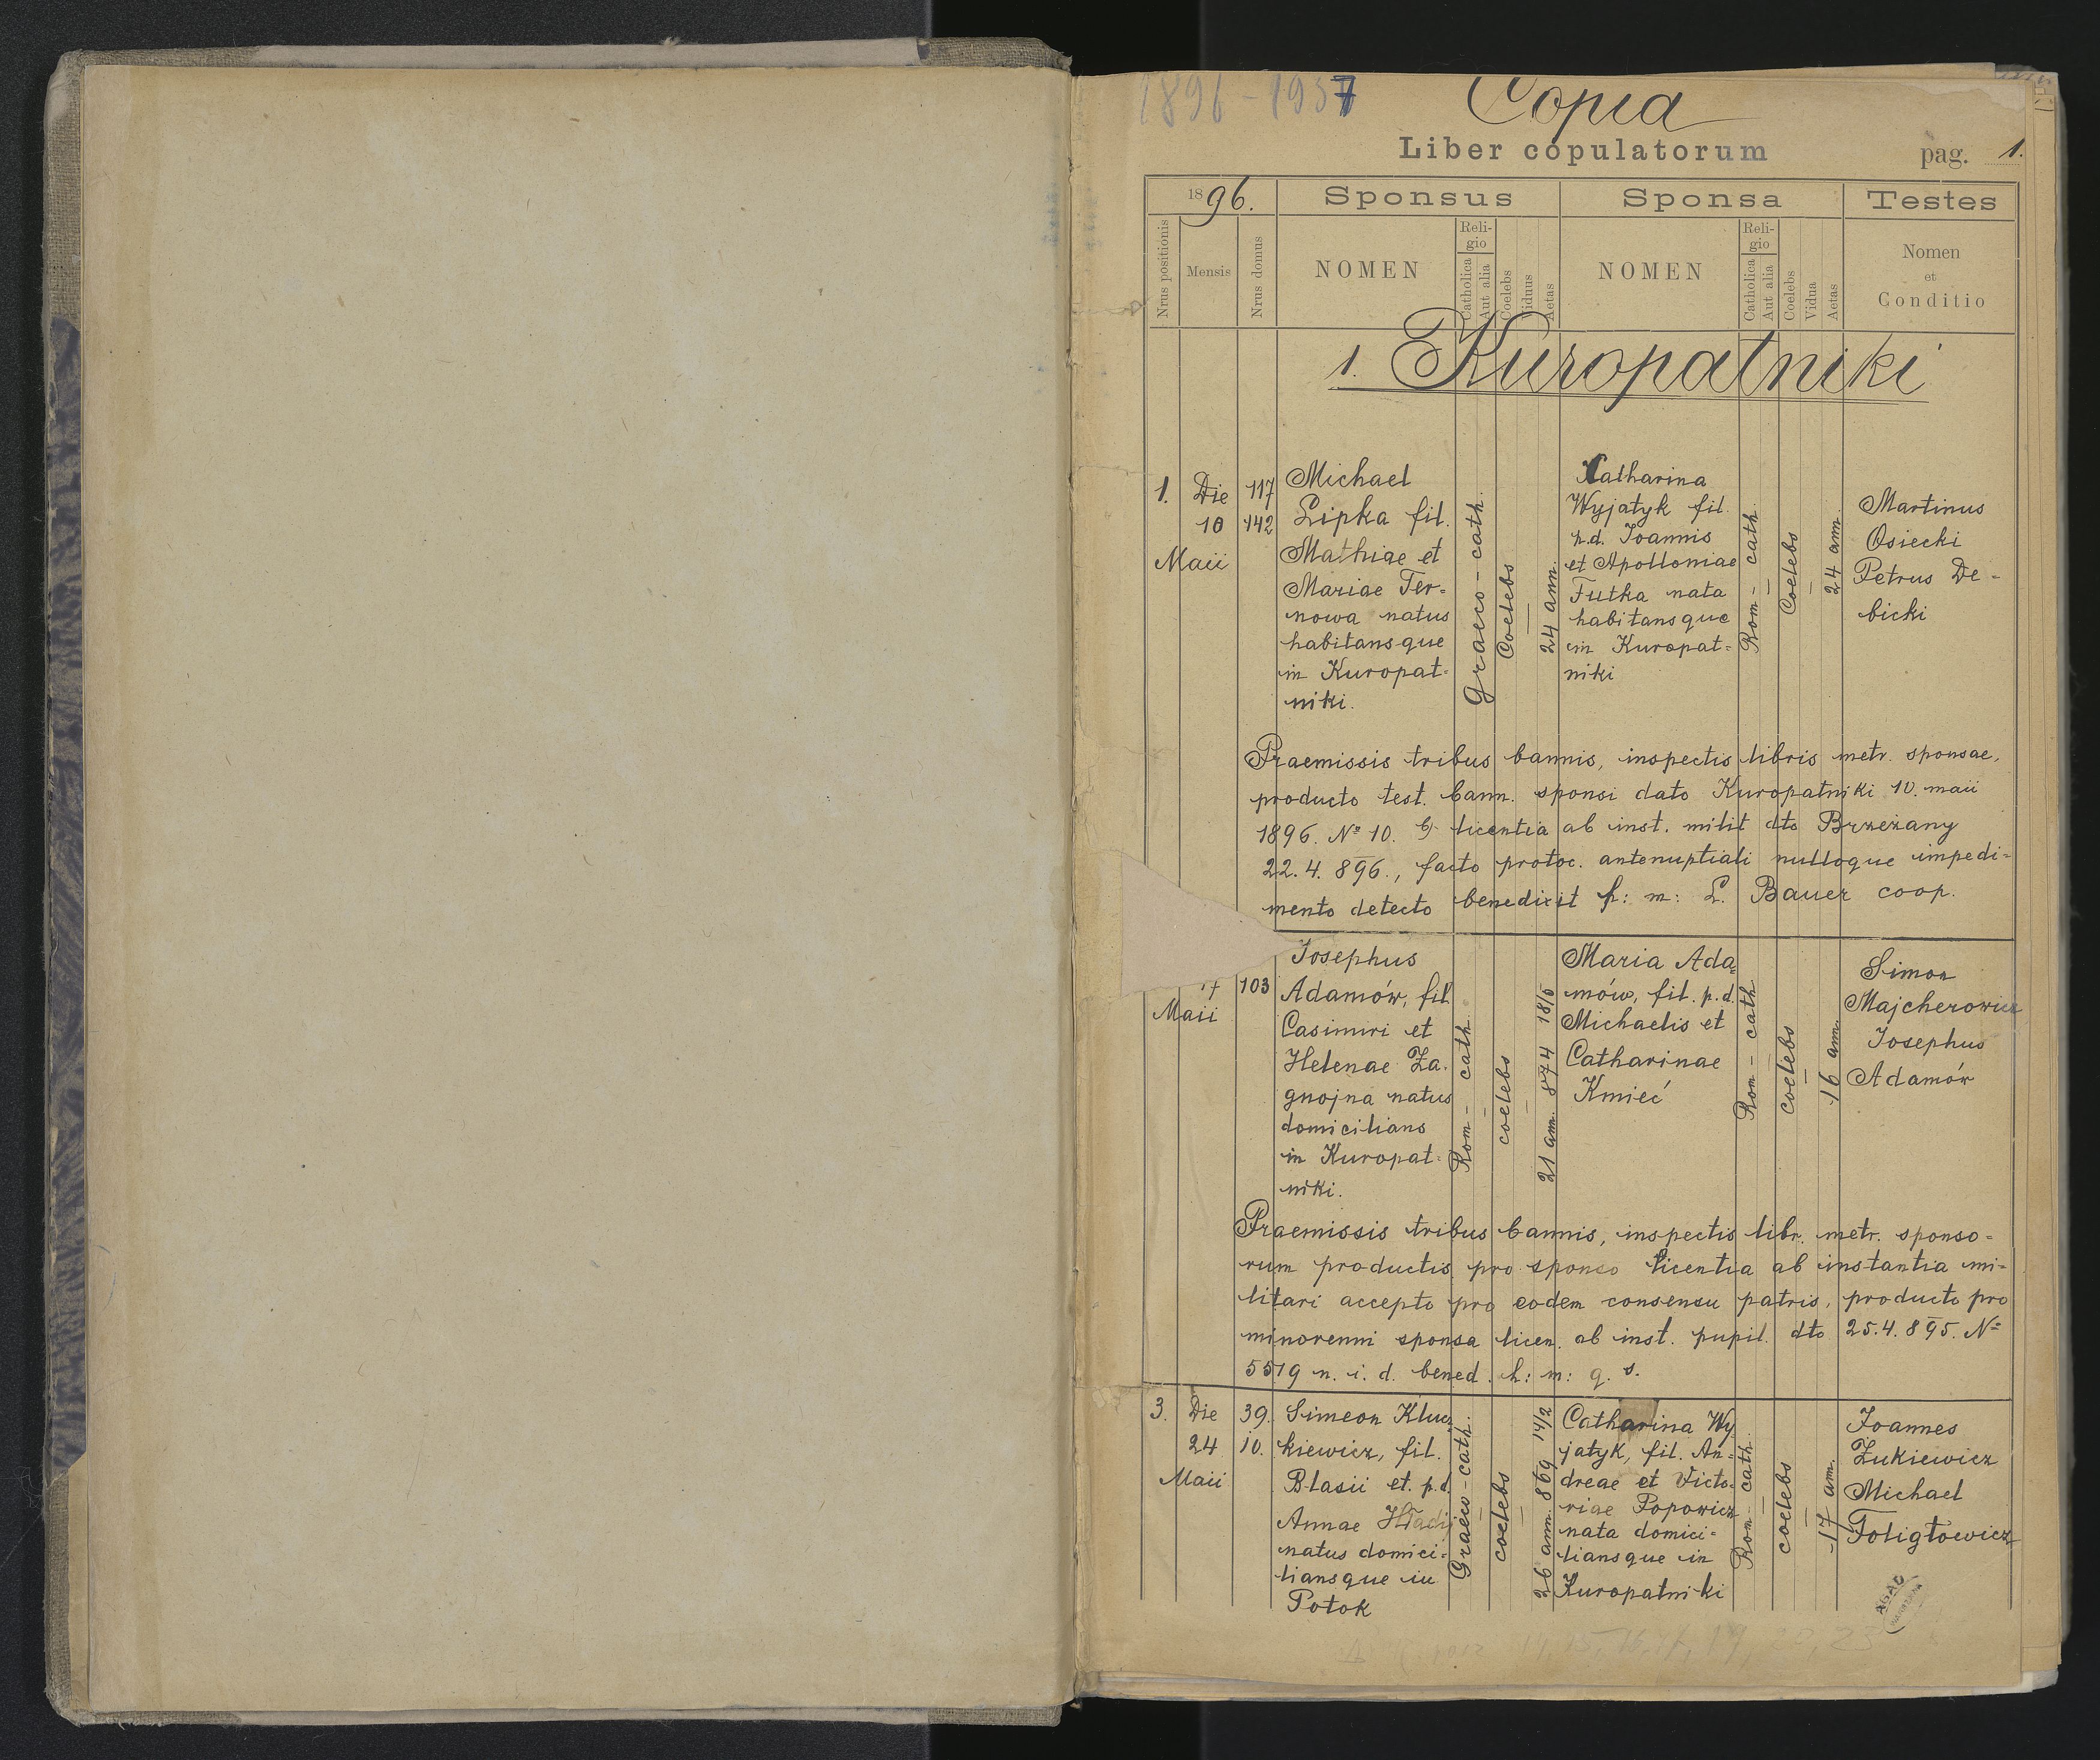 1896-1937
Copia
Liber copulatorum
pag. 1.
1896.
Sponsus
Sponsa
Testes
Nrus positionis
Mensis
Nrus domus
NOMEN
Religio
Catholica
Aut alia
Coelebs
Viduus
Aetas
NOMEN
Religio
Catholica
Aut alia
Coelebs
Vidua
Aetas
Nomen
et
Conditio
1. Kuropatniki
1.
Die
10
Maii
117
142
Michael
Lipka fil.
Mathiae et
Mariae Ter=
nowa natus
habitansque
in Kuropat=
niki.
Graeco-cath.
Coelebs
24 ann.
Catharina
Wyjatyk fil.
p.d. Joannis
et Apolloniae
Futka nata
habitansque
in Kuropat=
niki
Rom-cath.
Coelebs
24 ann.
Martinus
Osiecki
Petrus De-
bicki
Praemissis tribus bannis, inspectis libris metr. sponsae,
producto test. bann. sponsi dato Kuropatniki 10. maii
1896. No 10. licentia ab inst. milit dto Brzeżany
22.4.896., facto protoc. antenuptiali nulloque impedi=
mento detecto benedixit h: m: L. Bauer coop.
Maii
103
Josephus
Adamów, fil.
Casimiri et
Helenae Za.
gnojna natus
domicilians
in Kuropat=
niki.
Rom-cath.
coelebs
21 ann. 874 18/5
Maria Ada=
mów, fil. p.d.
Michaelis et
Catharinae
Kmieć
Rom-cath
coelebs
16 ann.
Simon
Majcherowicz
Josephus
Adamów
Praemissis tribus bannis, inspectis libr. metr. sponso=
rum productis pro sponso licentia ab instantia mi=
litari accepto pro eodem consensu patris, producto pro
minorenni sponsa licen. ab inst. pupil. dto 25.4.895. No
5519 n. i. d. bened. h: m: q. s.
3.
Die
24
Maii
39.
10.
Simeon Klucz
kiewicz, fil.
Blasii et p.d.
Annae
natus domici=
liansque in
Potok
Graeco-cath.
coelebs
26 ann. 869 14/2
Catharina Wy
jatyk, fil. An=
dreae et Victo=
riae Popowicz
nata domici=
liansque in
Kuropatniki
Rom-cath.
coelebs
17 ann.
Joannes
Żukiewicz
Michael
Foligłowicz
AGAD